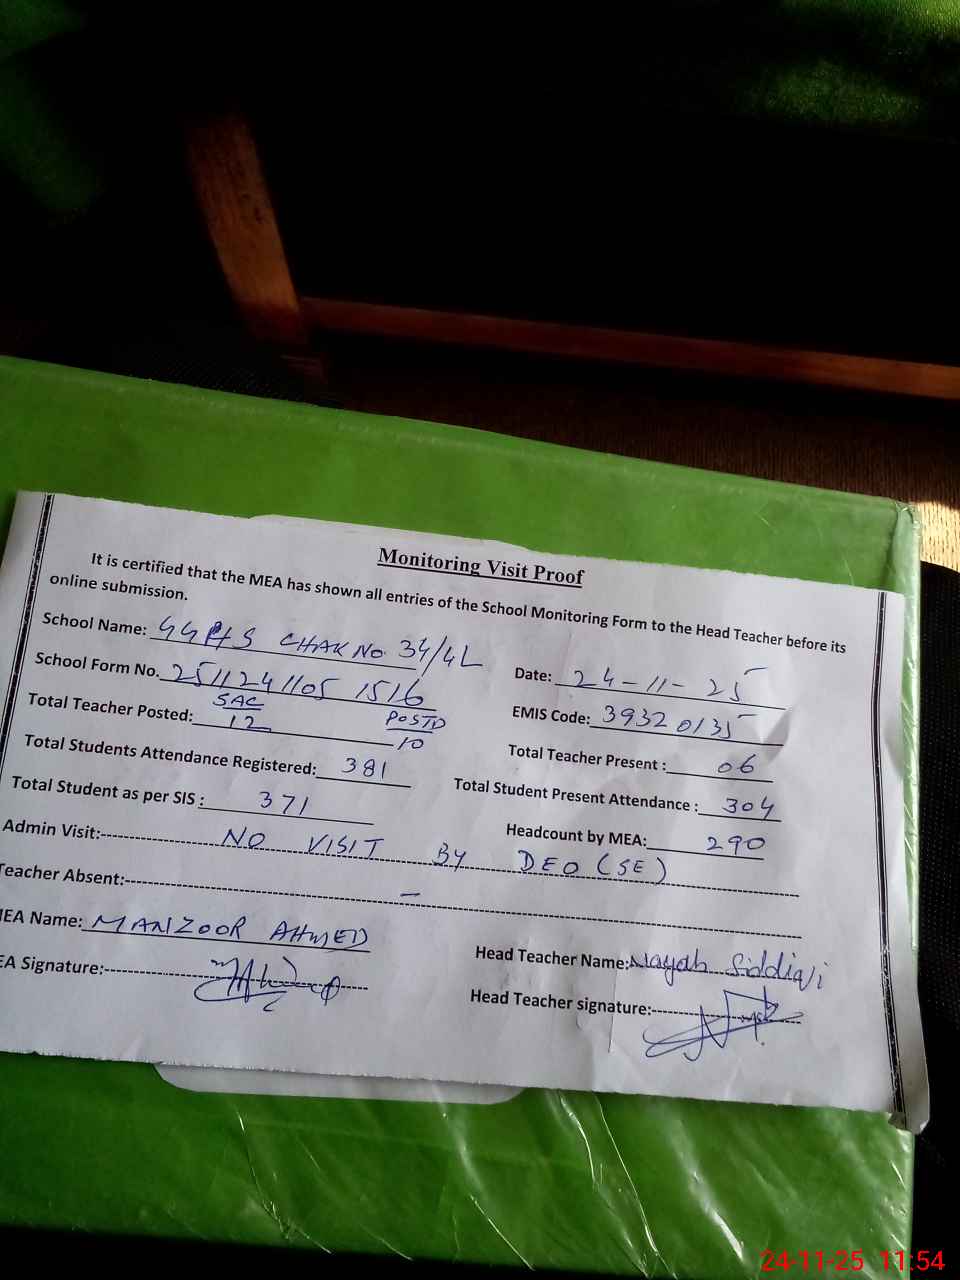 Monitoring Visit Proof
It is certified that the MEA has shown all entries of the School Monitoring Form to the Head Teacher before its
online submission.
School Name: GGPHS CHAK No. 34/4L
Date: 24-11-25
School Form No. 2511241105 1516
EMIS Code: 39320135
Total Teacher Posted: SAC 12 POSTD 10
Total Teacher Present : 06
Total Students Attendance Registered: 381
Total Student Present Attendance : 304
Total Student as per SIS : 371
Headcount by MEA: 290
Admin Visit: NO VISIT BY DEO (SE)
Teacher Absent: –
MEA Name: MANZOOR AHMED
Head Teacher Name: Nayab Siddiqi
EA Signature:
Head Teacher signature:
24-11-25 11:54